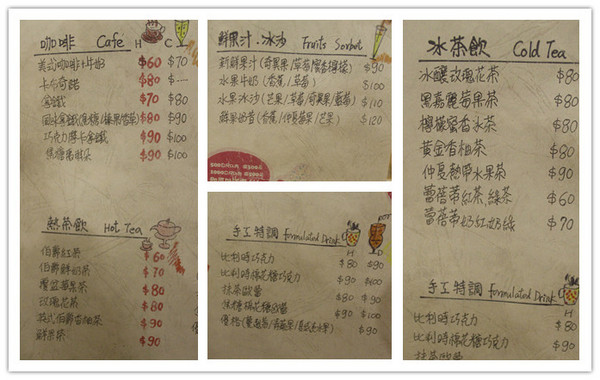 咖啡 Cafe H C
美式咖啡+牛奶 $60 $70
卡布奇諾 $80 $---
拿鐵 $70 $80
風味拿鐵(焦糖/榛果/香草) $80 $90
巧克力摩卡拿鐵 $90 $100
焦糖瑪琪朵 $90 $100
熱茶飲 Hot Tea
伯爵紅茶 $60
伯爵鮮奶茶 $70
覆盆莓果茶 $80
玫瑰花茶 $80
英式伯爵香柚茶 $90
鮮果茶 $90
鮮果汁.冰沙 Fruits Sorbet
新鮮果汁(奇異果/草莓/蜜香檸檬) $90
水果牛奶(香蕉/草莓) $100
水果冰沙(芒果/草莓/奇異果/藍莓) $110
鮮果奶昔(香蕉/仲夏莓果/芒果) $120
手工特調 Formulated Drink
H D
比利時巧克力 $80 $90
比利時棉花糖巧克力 $90 $100
抹茶歐蕾 $80 $90
焦糖棉花糖歐蕾 $90 $100
優格 $90
冰茶飲 Cold Tea
冰釀玫瑰花茶 $80
黑嘉麗莓果茶 $80
檸檬蜜香冰茶 $80
黃金香柚茶 $80
仲夏熱帶水果茶 $90
蕾蓓蒂紅茶.綠茶 $60
蕾蓓蒂奶紅.奶綠 $70
手工特調 Formulated Drink
H
比利時巧克力 $80
比利時棉花糖巧克力 $90
抹茶歐蕾